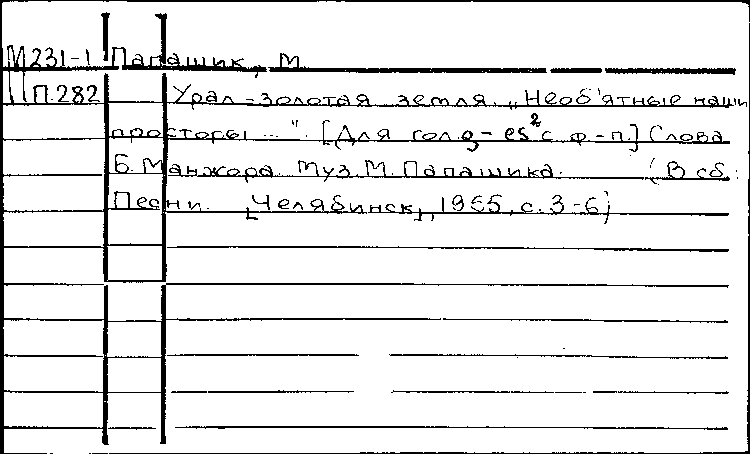 М231-1 Папашик, М.
П.282 Урал-золотая земля. „Необ'ятные наши
просторы ...". [Для гол. g-es² с ф-п.] Слова
Б. Манжора. Муз. М. Папашика. (В сб.:
Песни. [Челябинск], 1955, с. 3-6)